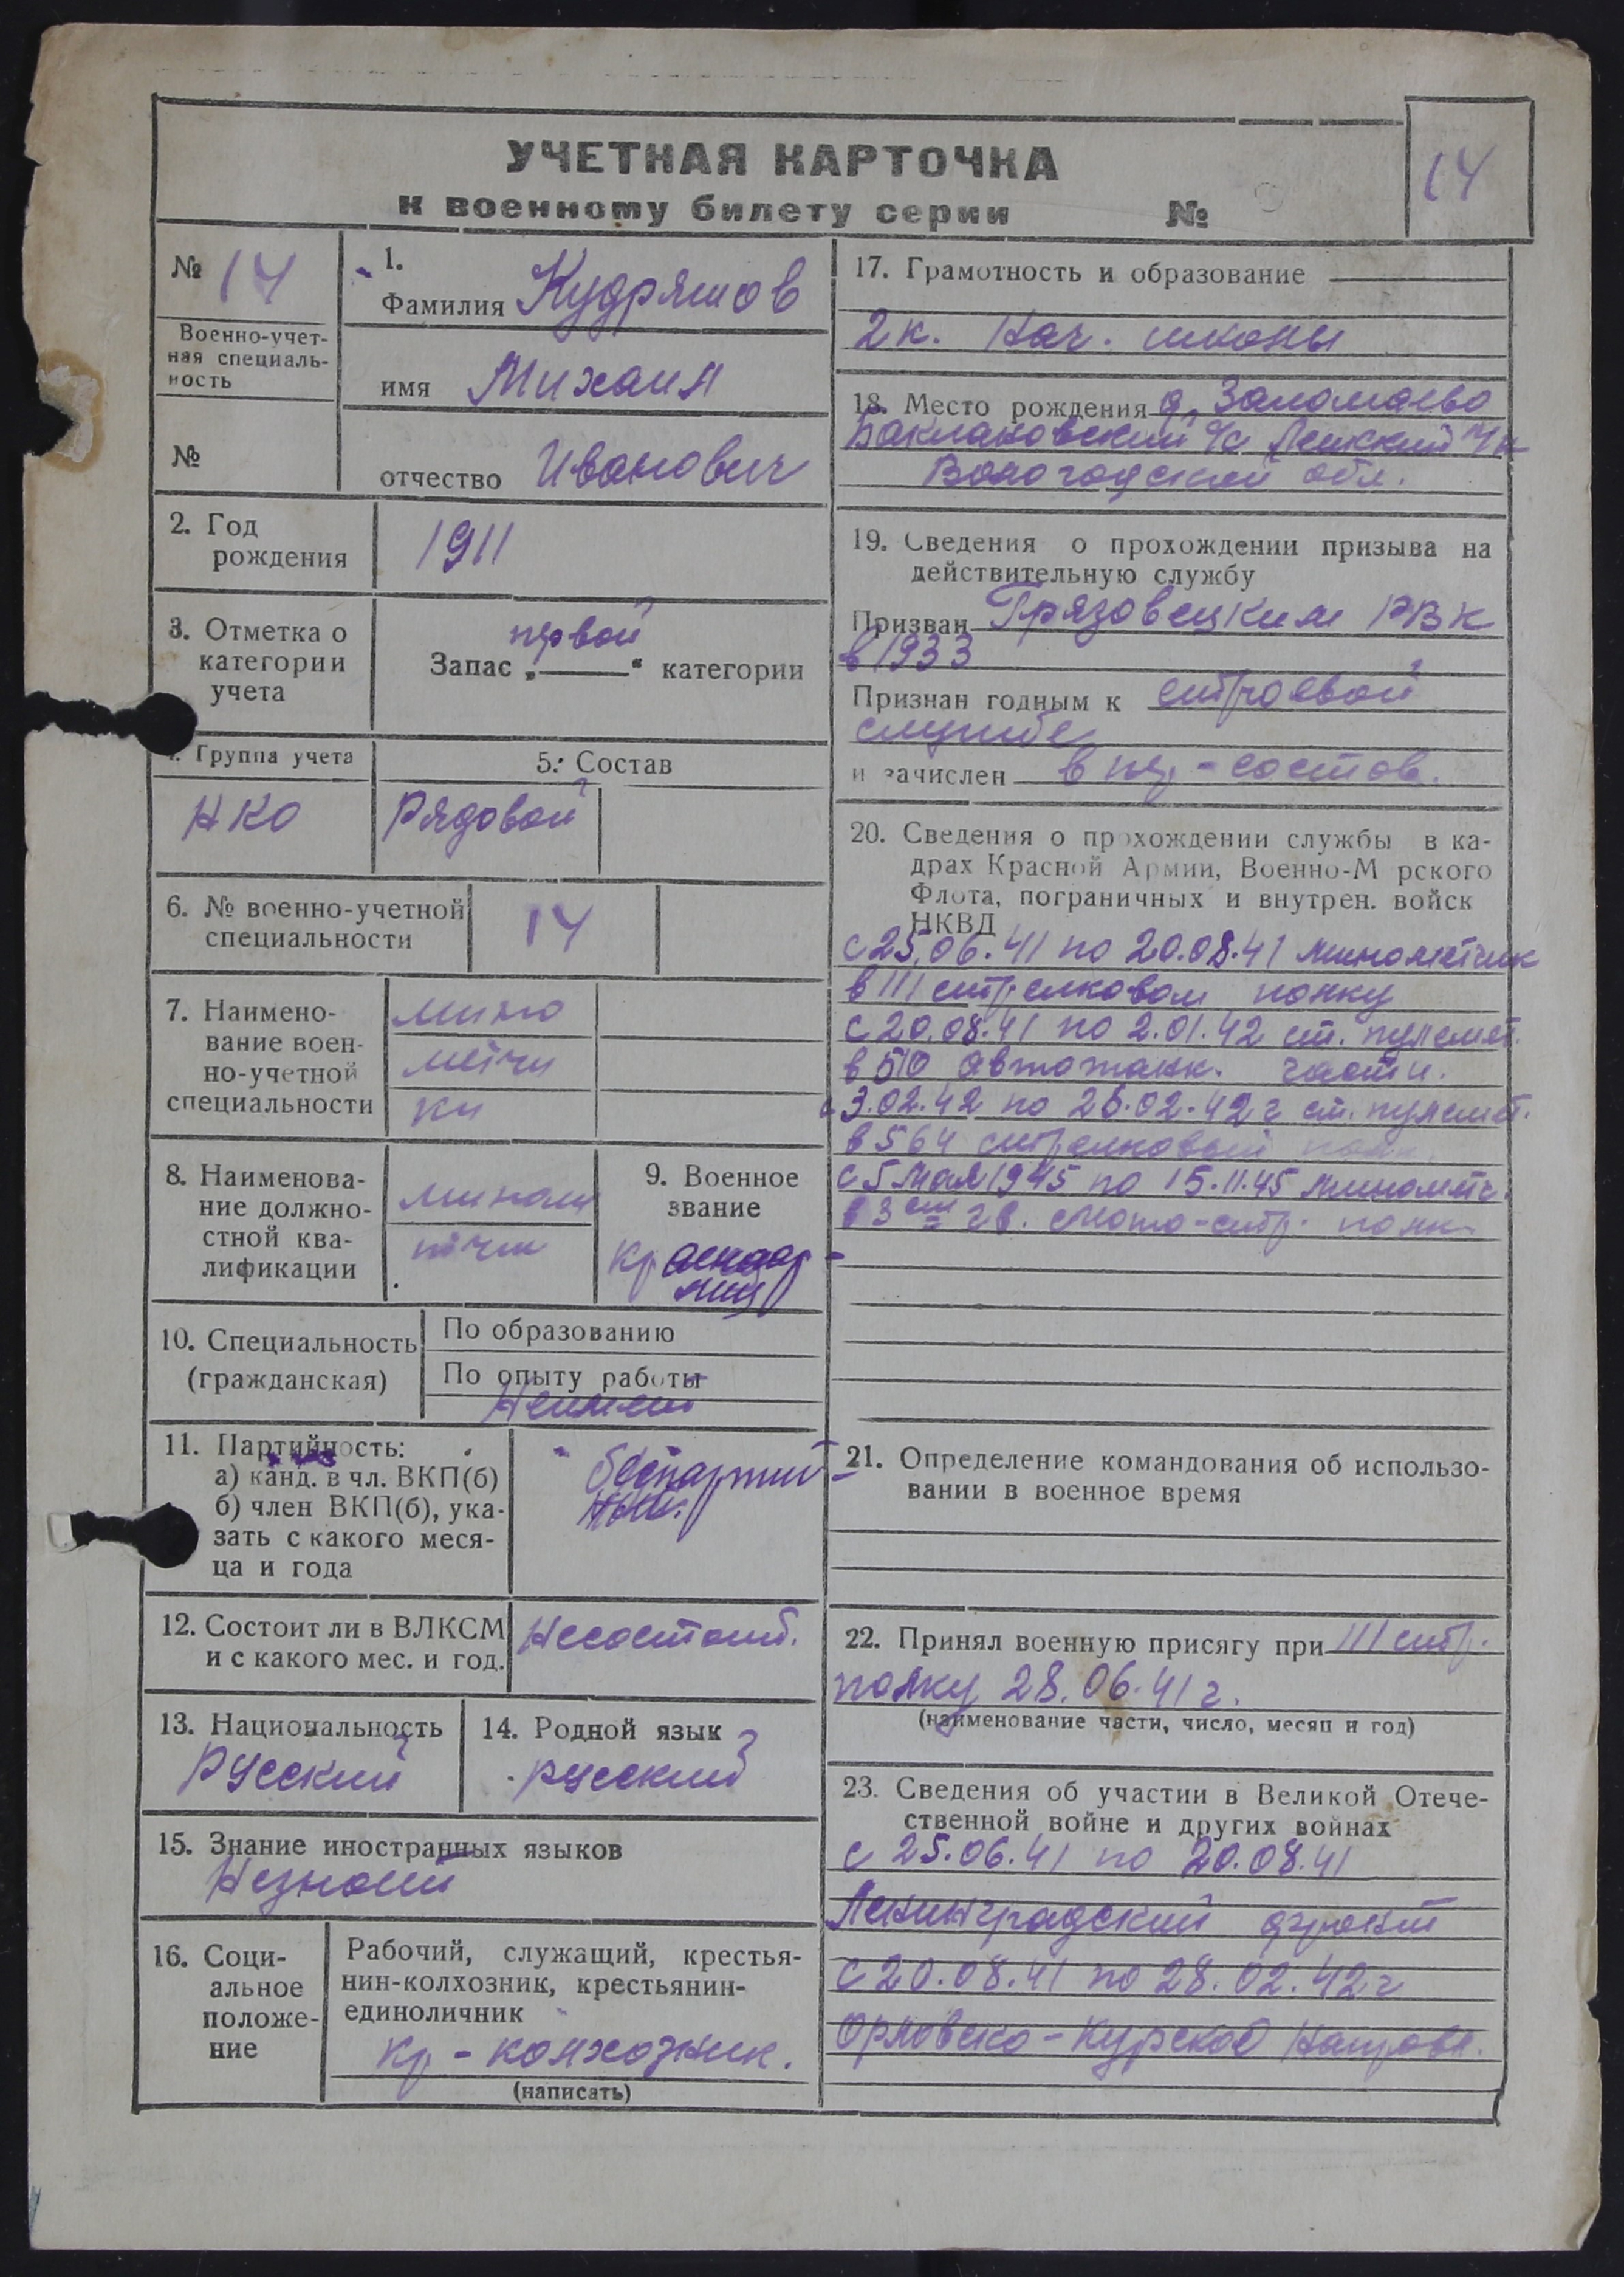 УЧЕТНАЯ КАРТОЧКА
к военному билету серии №
14
№ 14
Военно-учет-
ная специаль-
ность
№
1.
Фамилия Кудряшов
имя Михаил
отчество Иванович
2. Год
рождения
1911
3. Отметка о
категории
учета
первой
Запас „ “ категории
Группа учета
НКО
5. Состав
Рядовой
6. № военно-учетной
специальности
14
7. Наимено-
вание воен-
но-учетной
специальности
мино
метчи
ки
8. Наименова-
ние должно-
стной ква-
лификации
миноме
тчик
9. Военное
звание
красноар-
меец
10. Специальность
(гражданская)
По образованию
По опыту работы
Неимеет
11. Партийность:
а) канд. в чл. ВКП(б)
б) член ВКП(б), ука-
зать с какого меся-
ца и года
беспартий-
ный.
12. Состоит ли в ВЛКСМ
и с какого мес. и год.
Несостоит.
13. Национальность
Русский
14. Родной язык
русский
15. Знание иностранных языков
Незнает
16. Соци-
альное
положе-
ние
Рабочий, служащий, крестья-
нин-колхозник, крестьянин-
единоличник
кр-колхозник.
(написать)
17. Грамотность и образование
2 к. нач. школы
18. Место рождения д. Заломаево
Баклановский с/с Лежский
Вологодской обл.
19. Сведения о прохождении призыва на
действительную службу
Призван Грязовецким РВК
в 1933
Признан годным к строевой
службе
и зачислен в пер-состав.
20. Сведения о прохождении службы в ка-
драх Красной Армии, Военно-М рского
Флота, пограничных и внутрен. войск
НКВД
с 25.06.41 по 20.08.41 минометчик
в 111 стрелковом полку
с 20.08.41 по 2.01.42 ст. пулемет.
в 510 автотанк. части.
с 3.02.42 по 26.02.42 г ст. пулемет.
в 564 стрелковый полк.
с 5 мая 1945 по 15.11.45 минометч.
в 3 ем гв. мото-стр. полк.
21. Определение командования об использо-
вании в военное время
22. Принял военную присягу при 111 стр.
полку 28.06.41 г.
(наименование части, число, месяц и год)
23. Сведения об участии в Великой Отече-
ственной войне и других войнах
с 25.06.41 по 20.08.41
Ленинградский фронт
с 20.08.41 по 28.02.42 г
Орловско-Курское направл.